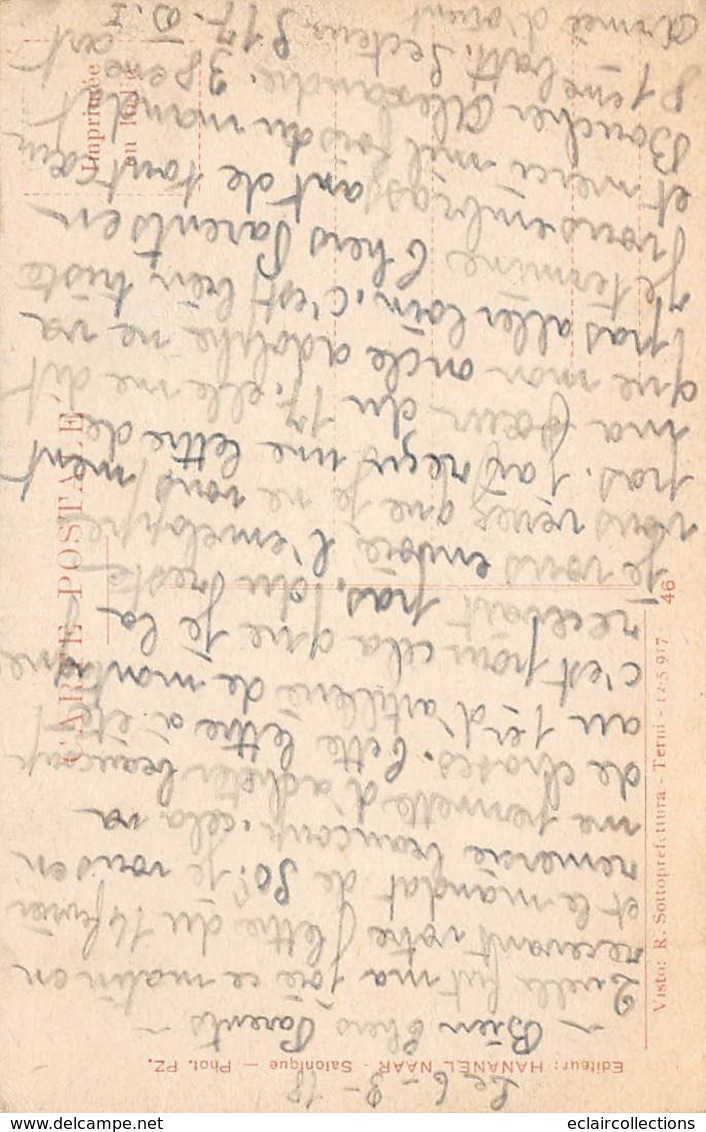 Le 6-3-18
Bien Chers Parents
Quelle fut ma joie ce matin en
recevant votre lettre du 14 février
et le mandat de 50f je vous en
remercie beaucoup. cela va
me permettre d'acheter beaucoup
de choses. Cette lettre a été
au 1er d'artillerie de montagne
c'est pour cela que je la
recevait pas, du reste
je vous envoie l'enveloppe
vous verrez que je ne vous ment
pas. j'ai reçu une lettre de
ma sœur du 17. elle me dit
que mon oncle adolphe ne va
pas aller loin, c'est bien triste
Je termine Chers Parents en
vous embrassant de tout cœur
et merci mil fois du mandat
Boucher Alexandre. 38eme art
81eme batt. Secteur 517
armée d'orient
CARTE POSTALE
Imprimée
en Italie
Editeur: HANANEL NAAR - Salonique — Phot. PZ.
Visto: R. Sottoprefettura - Terni - 12-5 917
46
eclaircollections@yahoo.fr